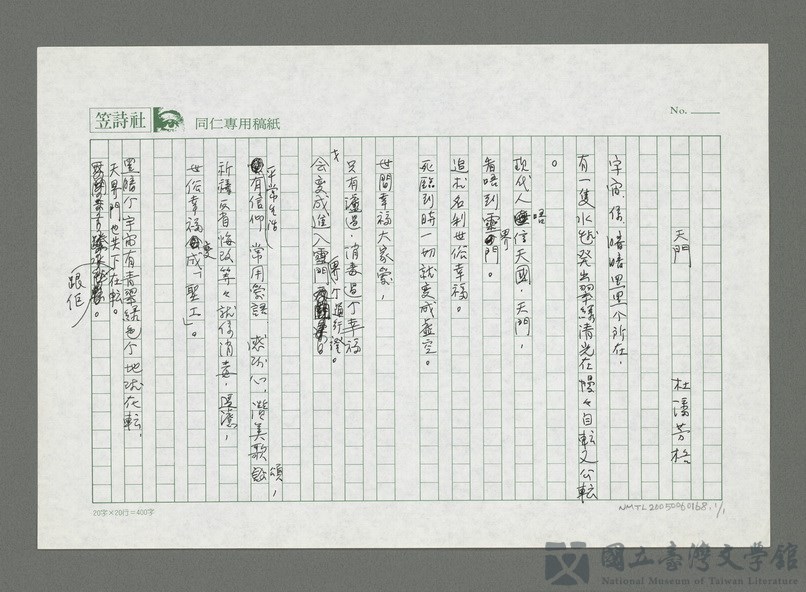 笠詩社
同仁專用稿紙
No.
天門
杜潘芳格
宇宙係暗暗黑黑个所在，
有一隻水球發出翠綠清光在慢々自転又公転
。
現代人唔信天國，天門，
看唔到靈界門。
追求名利世俗幸福。
死臨到時一切就変成虛空。
世間幸福大家愛，
只有濾過，消毒過个幸福
才会変成進入靈界門个通行證。
有信仰（平常生活）常用愛語 感謝心，讚美歌頌，
祈禱反省悔改等々就係消毒，
世俗幸福変成「聖工」。
黑暗个宇宙有青翠綠色个地球在転，
天界門也
在転。
跟佢
20字×20行=400字
NMTL20050060168. 1/1
國立臺灣文學館
National Museum of Taiwan Literature